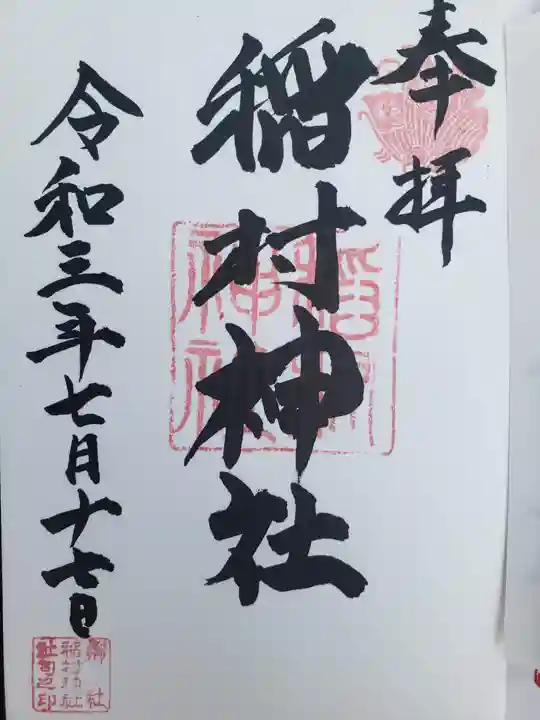 奉拝
稲村神社
令和三年七月十七日
稲村神社
郷社
稲村神社
社司之印